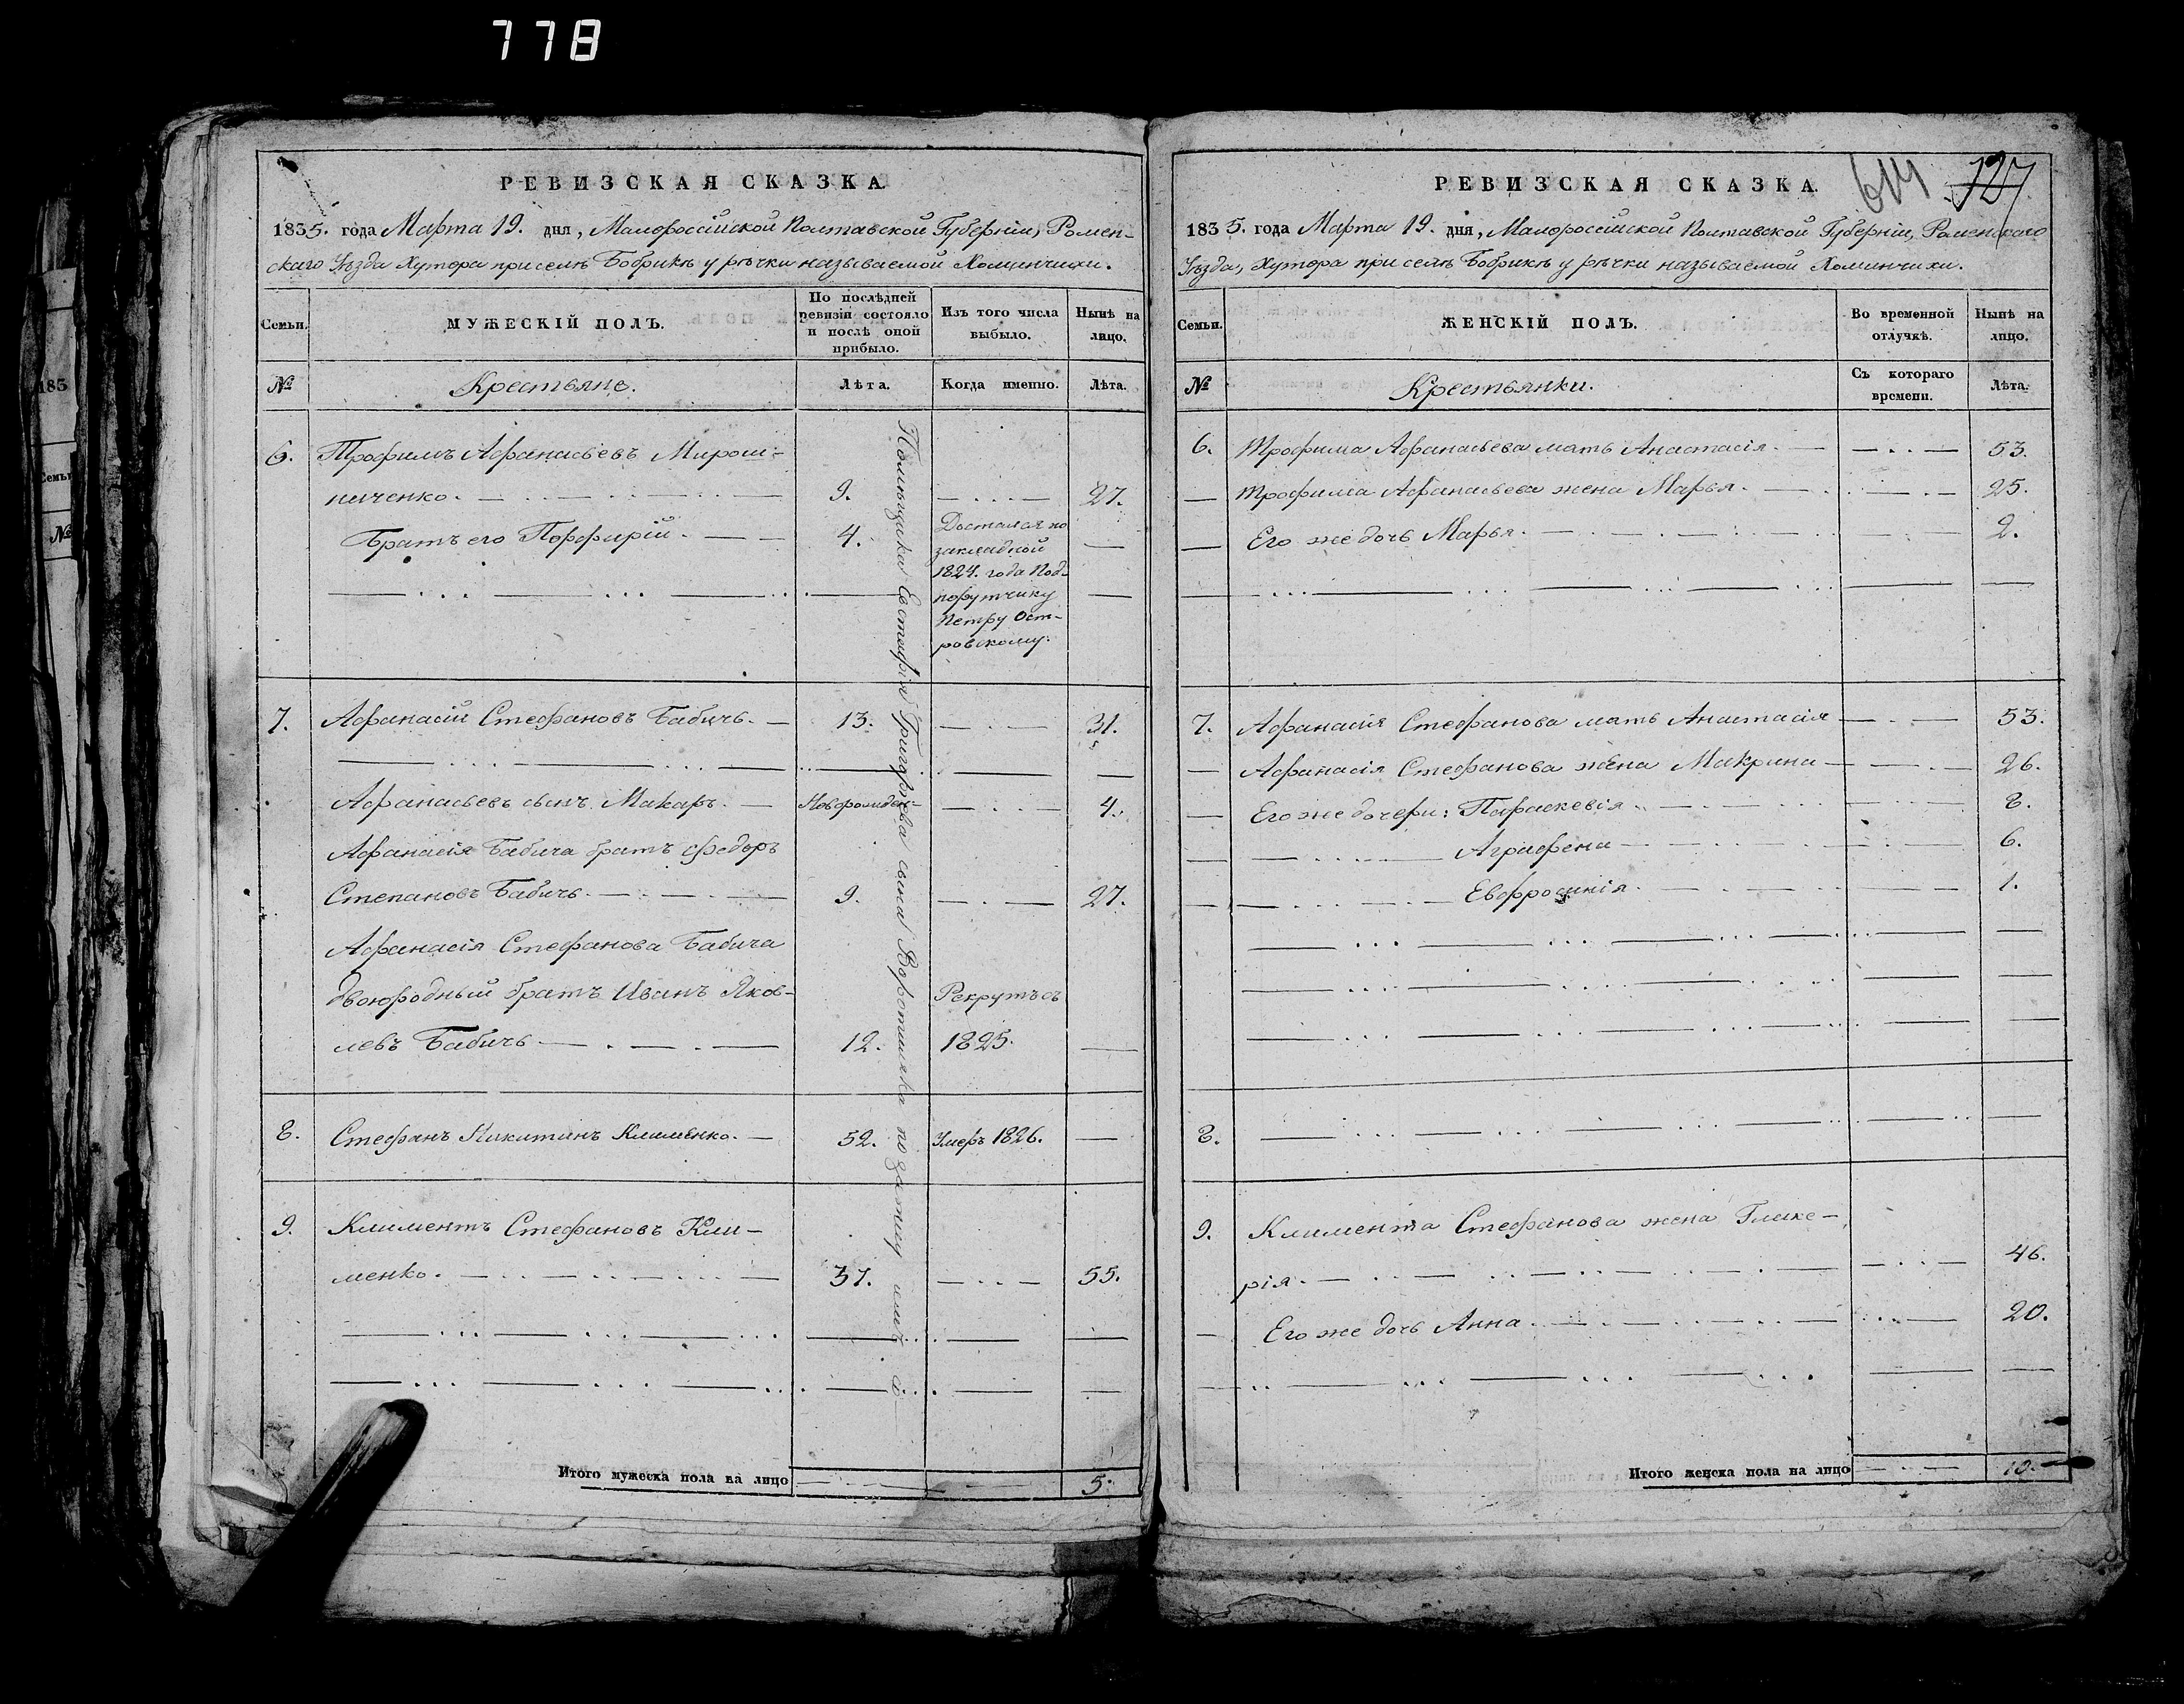 778
185
Семьи
№
РЕВИЗСКАЯ СКАЗКА
1835. года Марта 19. дня, Малороссійской Полтавской Губерніи, Ромен-
скаго Уѣзда Хутора при селѣ Бобрикѣ у рѣчки называемой Хоминчихи.
Семьи. МУЖЕСКІЙ ПОЛЪ. По послѣдней ревизіи состояло и послѣ оной прибыло. Изъ того числа выбыло. Нынѣ на лицо.
№ Крестьяне. Лѣта. Когда именно. Лѣта.
6. Трофимъ Афанасьевъ Мирош-
ниченко. 9. 27.
Братъ его Порфирій. 4. Достался по
закладной
1824. года Под-
порутчику
Петру Ост-
ровскому.
7. Афанасій Стефановъ Бабичъ. 13. 31.
Афанасьевъ сынъ Макаръ. Новорожден- 4.
Афанасія Бабича братъ Федоръ
Степановъ Бабичъ. 9. 27.
Афанасія Стефанова Бабича
двоюродный братъ Иванъ Яков-
левъ Бабичъ 12. Рекрутъ съ
1825.
8. Стефанъ Никитинъ Клименко. 52. Умеръ 1826.
9. Климентъ Стефановъ Кли-
менко. 37. 55.
Итого мужеска пола на лицо 5.
Помѣщика Евстафія Григорьева сына Воротиляка
РЕВИЗСКАЯ СКАЗКА.
614 127
1835. года Марта 19. дня, Малороссійской Полтавской Губерніи, Роменскаго
Уѣзда, Хутора при селѣ Бобрикѣ у рѣчки называемой Хоминчихи.
Семьи. ЖЕНСКІЙ ПОЛЪ. Во временной отлучкѣ. Нынѣ на лицо.
№ Крестьянки. Съ котораго времени. Лѣта.
6. Трофима Афанасьева мать Анастасія. 53.
Трофима Афанасьева жена Марья. 25.
Его же дочь Марья. 2.
7. Афанасія Стефанова мать Анастасія 53.
Афанасія Стефанова жена Макрина 26.
Его же дочери: Параскевія. 8.
Аграфена 6.
Евфросинія. 1.
8.
9. Климента Стефанова жена Глике-
рія. 46.
Его же дочь Анна. 20.
Итого женска пола на лицо 10.